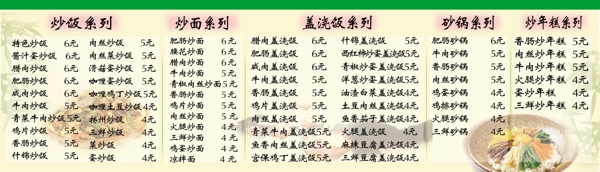 炒饭系列
特色炒饭 6元
酱汁妾炒饭 6元
腊肉炒饭 6元
肥肠炒饭 6元
咸肉炒饭 6元
牛肉炒饭 5元
青菜牛肉炒饭 5元
鸡片炒饭 5元
香肠炒饭 5元
什锦炒饭 5元
肉丝炒饭 5元
肉丝菜炒饭 5元
滑菇妾炒饭 5元
咖喱妾炒饭 5元
咖喱鸡丁炒饭 5元
咖喱土豆炒饭 4元
扬州炒饭 4元
三鲜炒饭 4元
菜炒饭 4元
妾炒饭 4元
炒面系列
肥肠炒面 6元
腰花炒面 6元
腊肉炒面 6元
牛肉炒面 5元
青椒肉丝炒面 5元
香肠炒面 5元
鸡片炒面 5元
肉丝炒面 5元
火腿炒面 4元
三鲜炒面 4元
鸡妾炒面 4元
凉拌面 4元
盖浇饭系列
腊肉盖浇饭 6元
肥肠盖浇饭 6元
咸肉盖浇饭 6元
牛肉盖浇饭 5元
香肠盖浇饭 5元
鸡片盖浇饭 5元
肉丝盖浇饭 5元
青菜牛肉盖浇饭 5元
鱼香肉丝盖浇饭 5元
宫保鸡丁盖浇饭 5元
什锦盖浇饭 5元
西红柿炒妾盖浇饭 5元
青椒炒妾盖浇饭 5元
洋葱炒妾盖浇饭 5元
油渣白菜盖浇饭 4元
土豆肉丝盖浇饭 4元
鱼香茄子盖浇饭 4元
火腿盖浇饭 4元
麻辣豆腐盖浇饭 4元
三鲜豆腐盖浇饭 4元
砂锅系列
肥肠砂锅 6元
牛肉砂锅 5元
香肠砂锅 5元
肉丝砂锅 5元
鸡妾砂锅 4元
鸡排砂锅 4元
火腿砂锅 4元
三鲜砂锅 4元
炒年糕系列
香肠炒年糕 5元
肉丝炒年糕 5元
牛肉炒年糕 5元
火腿炒年糕 4元
妾炒年糕 4元
三鲜炒年糕 4元